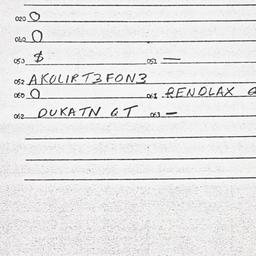 020 O
040 O
050 $ 051 —
052 AKOLIRT3FON3
060 O 061 RENOLAX
062 DUKATN GT 063 —